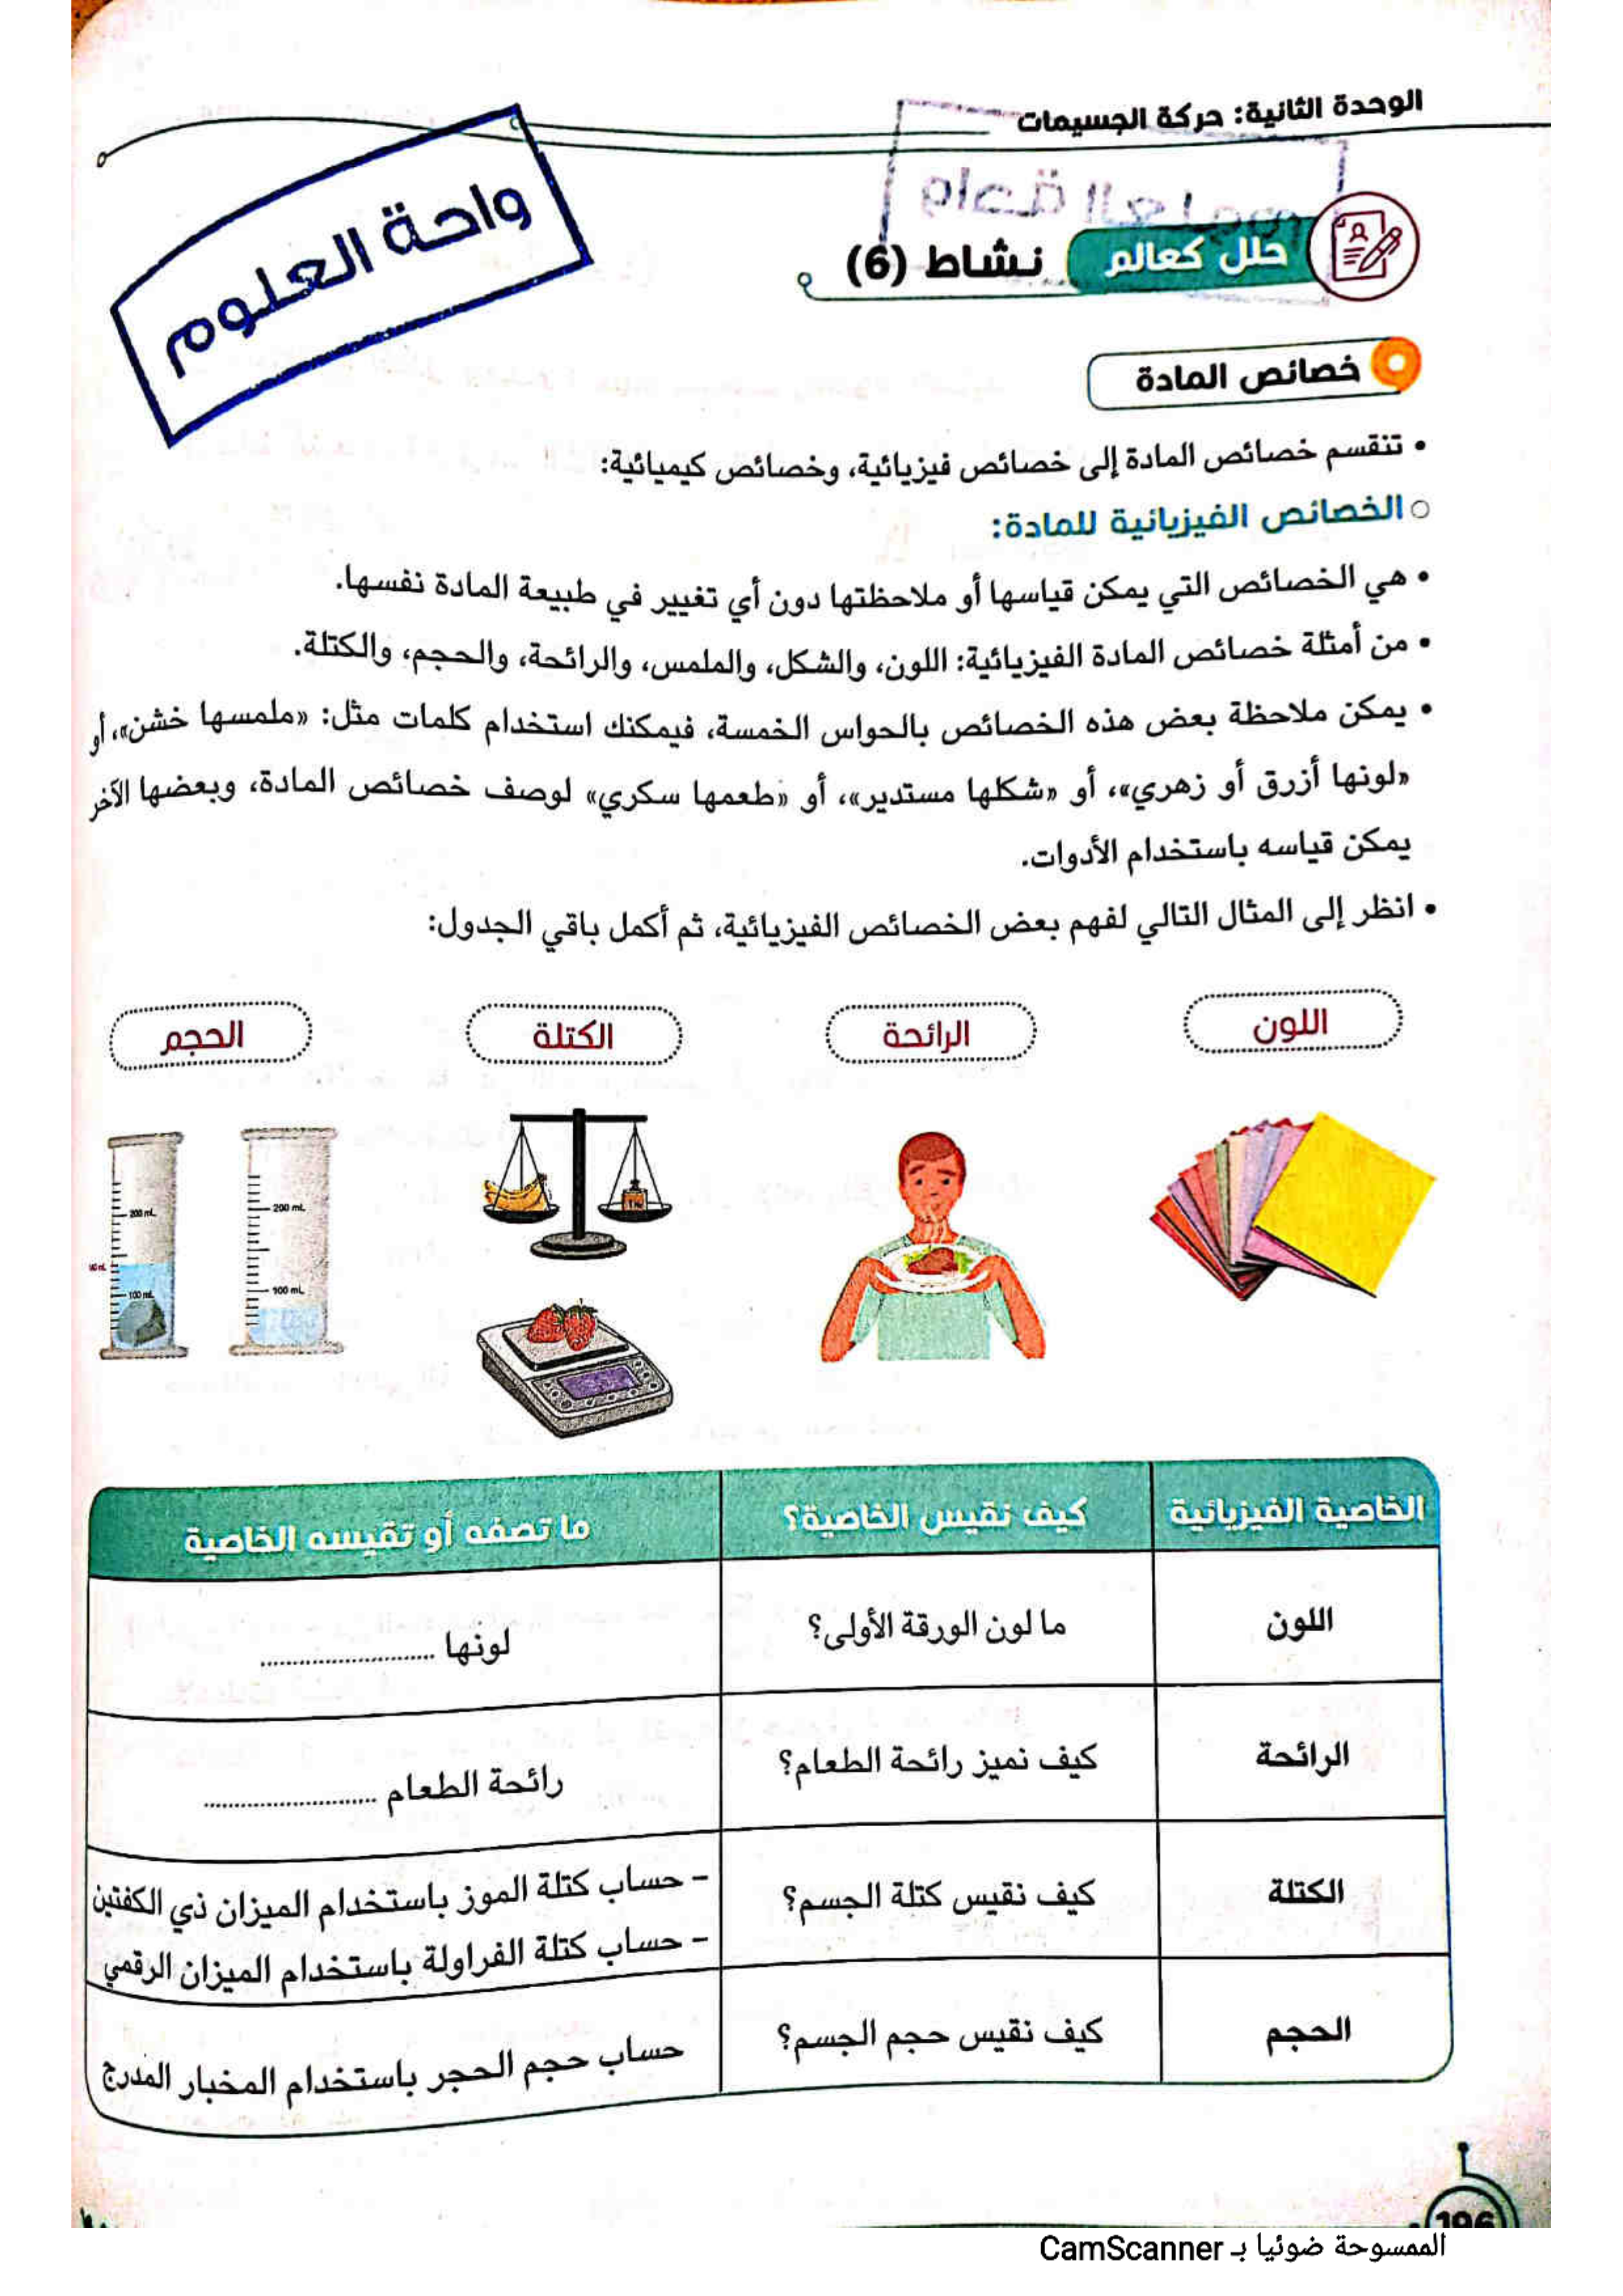 الوحدة الثانية: حركة الجسيمات
واحة العلوم
واحة العلوم
حلل كعالم نشاط (6)
خصائص المادة
• تنقسم خصائص المادة إلى خصائص فيزيائية، وخصائص كيميائية:
○ الخصائص الفيزيائية للمادة:
• هي الخصائص التي يمكن قياسها أو ملاحظتها دون أي تغيير في طبيعة المادة نفسها.
• من أمثلة خصائص المادة الفيزيائية: اللون، والشكل، والملمس، والرائحة، والحجم، والكتلة.
• يمكن ملاحظة بعض هذه الخصائص بالحواس الخمسة، فيمكنك استخدام كلمات مثل: «ملمسها خشن»، أو
«لونها أزرق أو زهري»، أو «شكلها مستدير»، أو «طعمها سكري» لوصف خصائص المادة، وبعضها الآخر
يمكن قياسه باستخدام الأدوات.
• انظر إلى المثال التالي لفهم بعض الخصائص الفيزيائية، ثم أكمل باقي الجدول:
اللون الرائحة الكتلة الحجم
200 mL 200 mL
100 mL 100 mL
الخاصية الفيزيائية كيف نقيس الخاصية؟ ما تصفه أو تقيسه الخاصية
اللون ما لون الورقة الأولى؟ لونها ..........................
الرائحة كيف نميز رائحة الطعام؟ رائحة الطعام ..........................
الكتلة كيف نقيس كتلة الجسم؟ - حساب كتلة الموز باستخدام الميزان ذي الكفتين
- حساب كتلة الفراولة باستخدام الميزان الرقمي
الحجم كيف نقيس حجم الجسم؟ حساب حجم الحجر باستخدام المخبار المدرج
196
الممسوحة ضوئيا بـ CamScanner